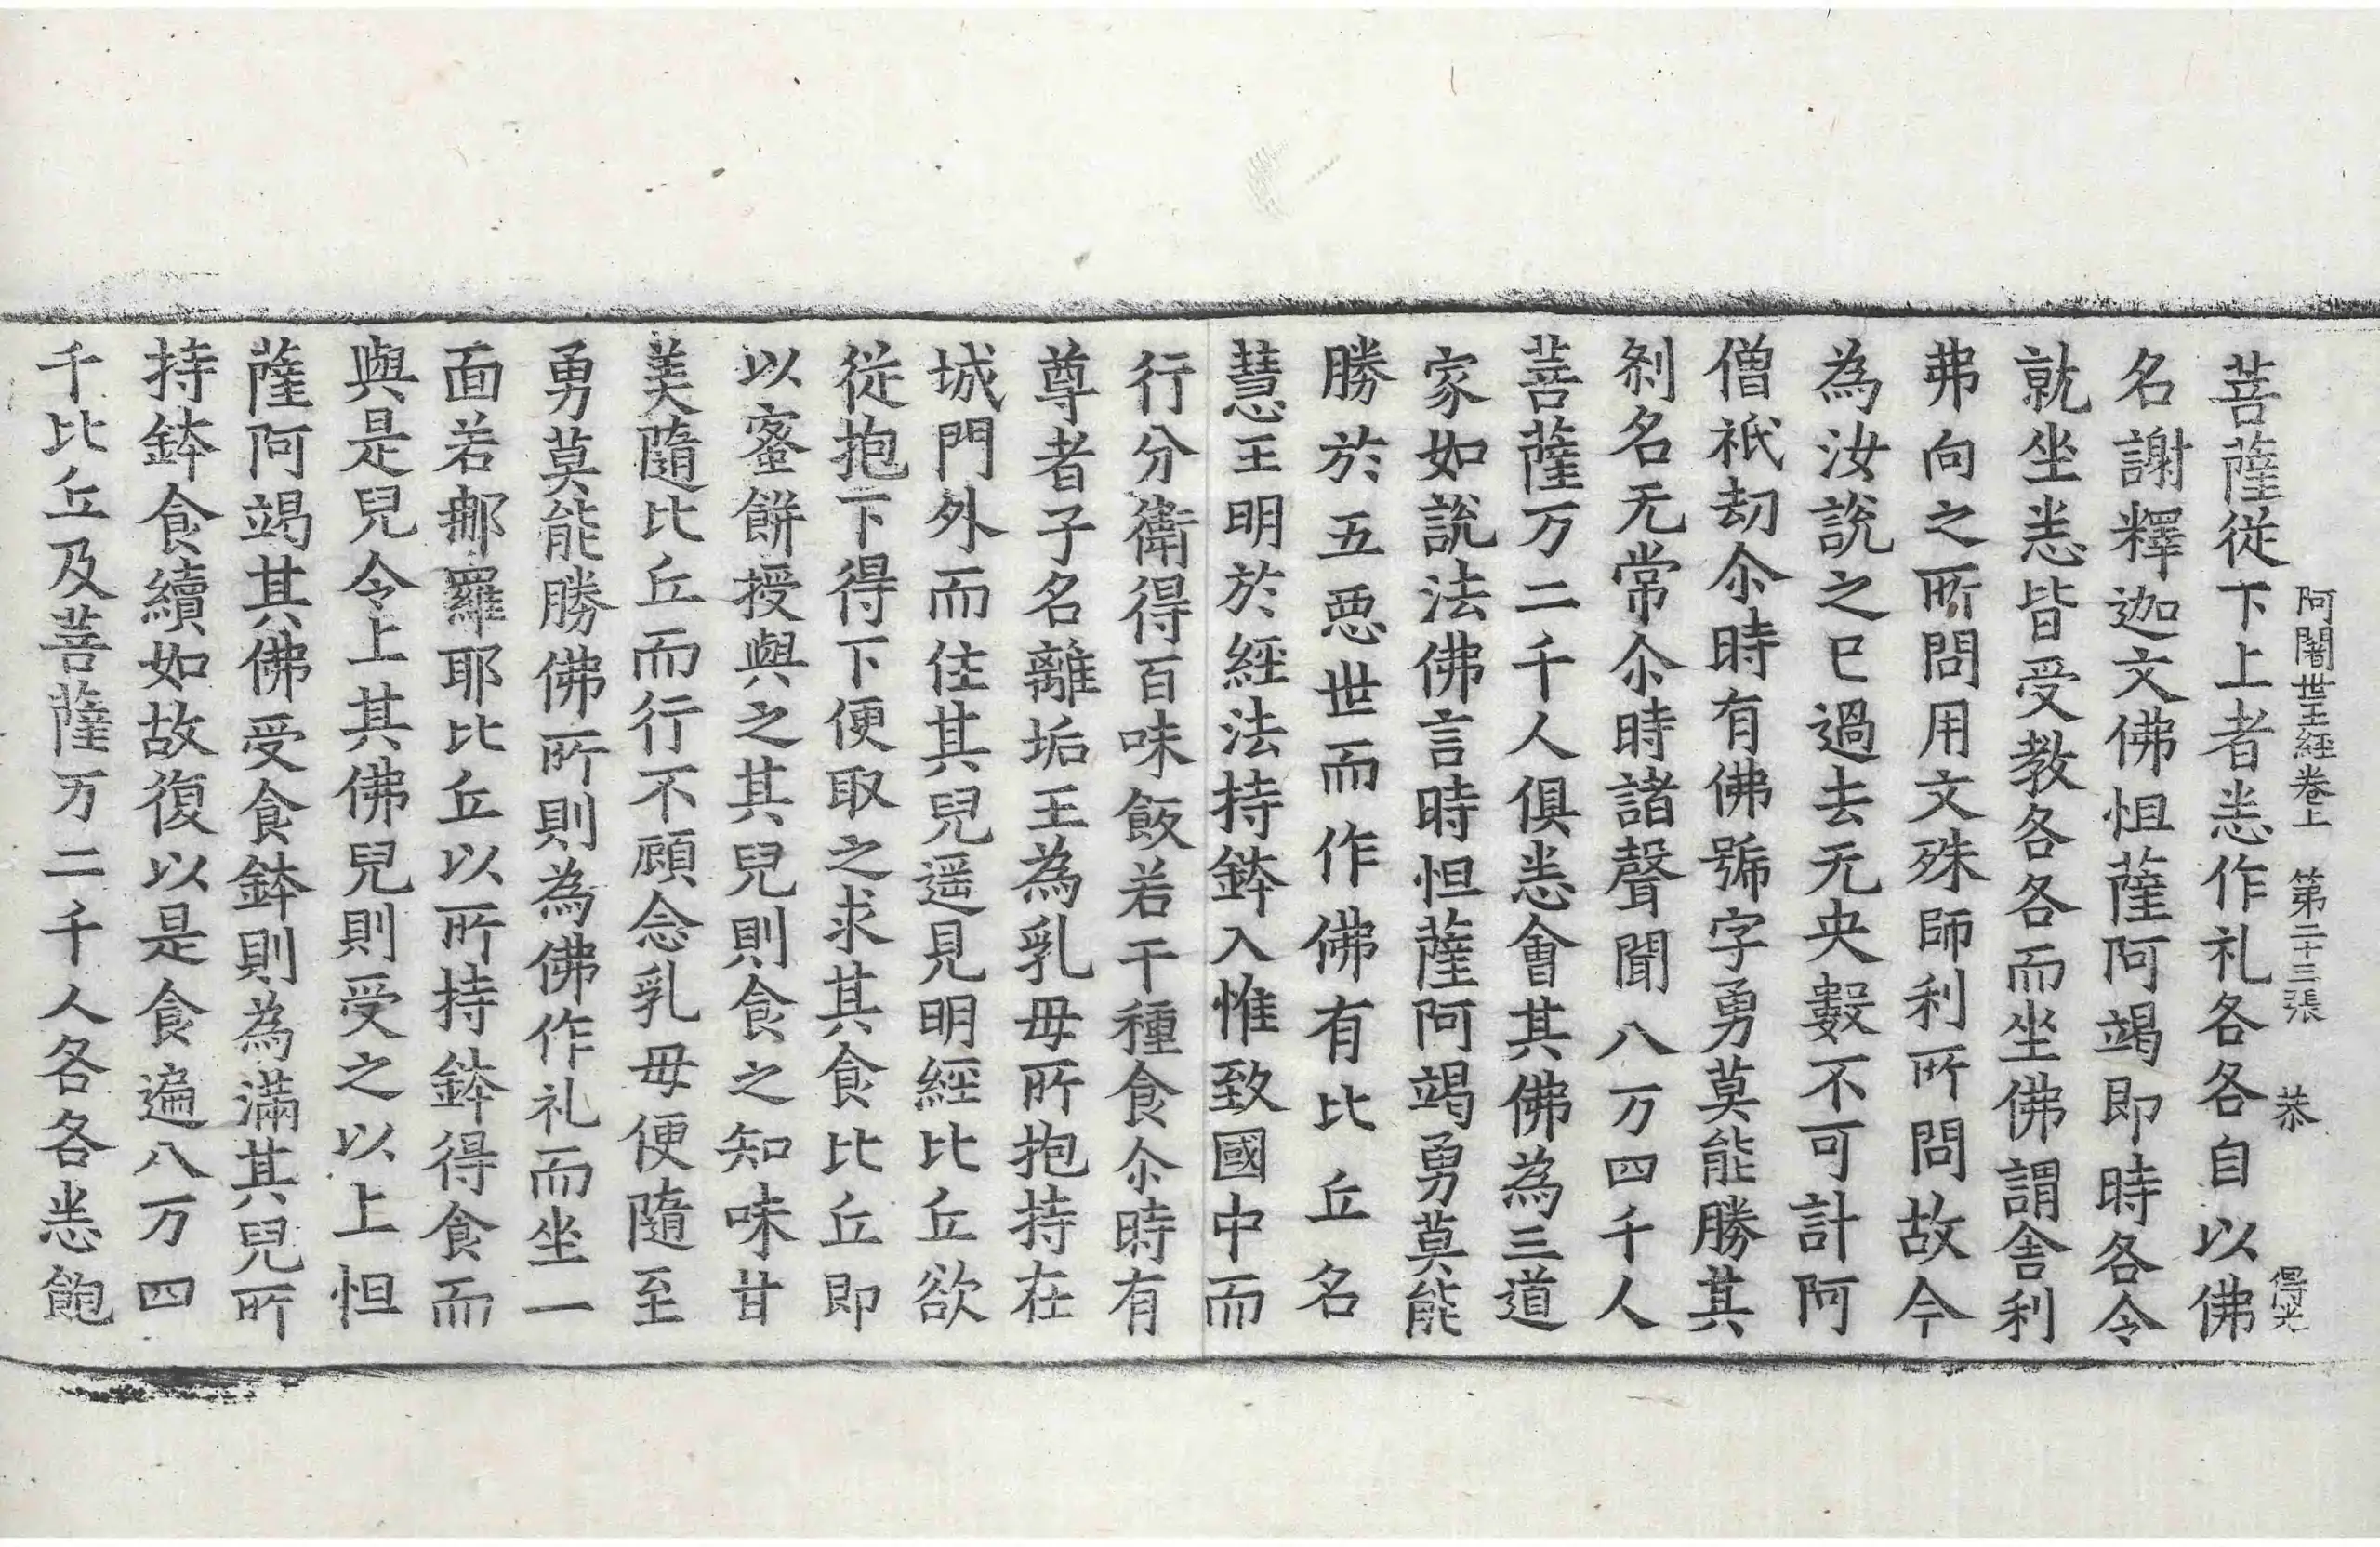 阿闍世王經卷上　第二十三張　恭　得光
菩薩従下上者悉作礼各各自以佛
名謝釋迦文佛怛薩阿竭即時各令
就坐悉皆受教各各而坐佛謂舎利
弗向之所問用文殊師利所問故今
為汝說之已過去无央數不可計阿
僧祇劫尒時有佛號字勇莫能勝其
刹名无常尒時諸聲聞八万四千人
菩薩万二千人俱悉會其佛為三道
家如說法佛言時怛薩阿竭勇莫能
勝於五惡世而作佛有比丘名
慧王明於經法持鉢入惟致國中而
行分衛得百味飯若干種食尒時有
尊者子名離垢王為乳母所抱持在
城門外而住其兒遥見明經比丘欲
従抱下得下便取之求其食比丘即
以蜜餅授與之其兒則食之知味甘
美隨比丘而行不顧念乳母便隨至
勇莫能勝佛所則為佛作礼而坐一
面若那羅耶比丘以所持鉢得食而
與是兒令上其佛兒則受之以上怛
薩阿竭其佛受食鉢則為滿其兒所
持鉢食續如故復以是食遍八万四
千比丘及菩薩万二千人各各悉飽